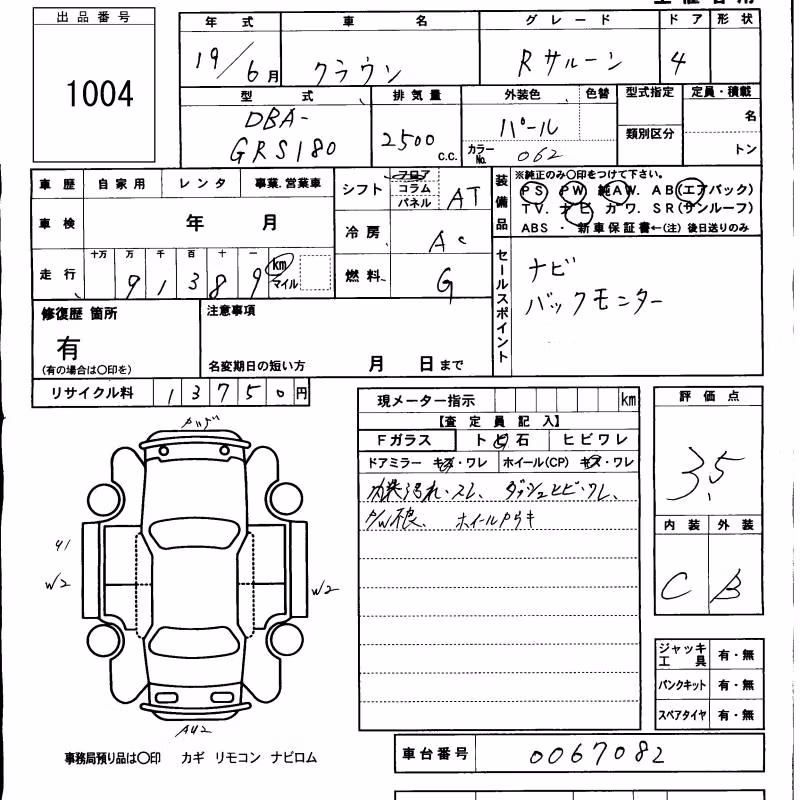 出品番号
1004
年式 車名 グレード ドア 形状
19/6月 クラウン Rサルーン 4
型式 排気量 外装色 色替 型式指定 定員・積載
DBA-
GRS180 2500c.c. パール 名
カラーNo. 062 類別区分 トン
車歴 自家用 レンタ 事業.営業車
シフト フロア コラム パネル AT
装備品 ※純正のみ〇印をつけて下さい。
PS PW 純AW. AB(エアバック)
TV. ナビ カワ. SR(サンルーフ)
ABS ・ 新車保証書←(注) 後日送りのみ
車検 年 月
冷房 AC
走行 十万 万 千 百 十 一
91389 km マイル
燃料 G
セールスポイント
ナビ
バックモニター
修復歴 箇所
有
(有の場合は〇印を)
注意事項
名変期日の短い方 月 日まで
リサイクル料 13750円
現メーター指示 km
【査定員記入】
Fガラス トビ石 ヒビワレ
ドアミラー キズ・ワレ ホイール(CP) キズ・ワレ
内装汚れ・スレ、ダッシュヒビ・ワレ、
P/W不良、
評価点
3.5
内装 外装
C B
W2
W2
A42
ジャッキ工具 有・無
パンクキット 有・無
スペアタイヤ 有・無
事務局預り品は〇印 カギ リモコン ナビロム
車台番号 0067082